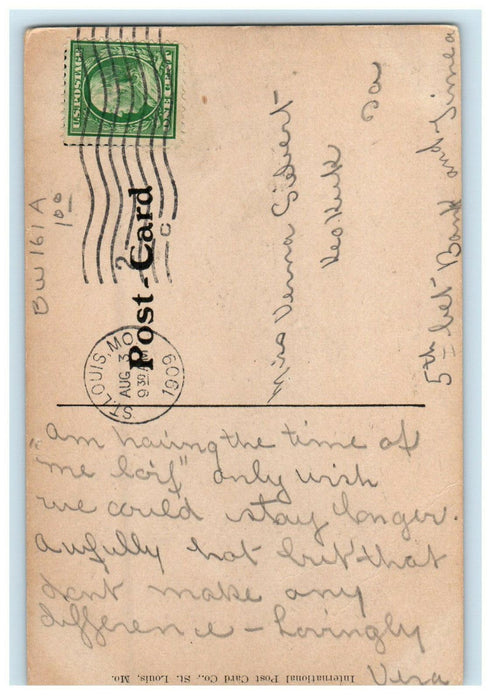 U.S. POSTAGE
Post-Card
ST. LOUIS, MO.
AUG 3
930 AM
1909
2
C
BW161A
1 00
Miss Verna Gibert
Keokuk
Ia
5th bet Bank and Timea
"am having the time of
me loif" only wish
we could stay longer.
awfully hot but that
dont make any
difference - Lovingly
Vera
International Post Card Co., St. Louis, Mo.